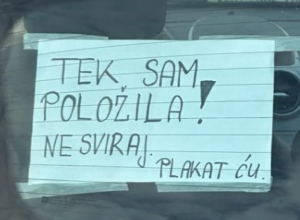 TEK SAM
POLOŽILA!
NE SVIRAJ.
PLAKAT ĆU.